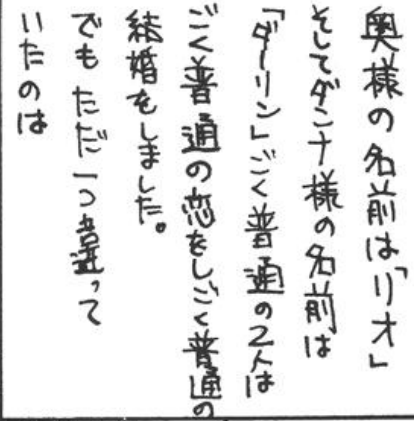 奥様の名前は「リオ」
そしてダンナ様の名前は
「ダーリン」ごく普通の2人は
ごく普通の恋をしごく普通の
結婚をしました。
でもただ一つ違って
いたのは